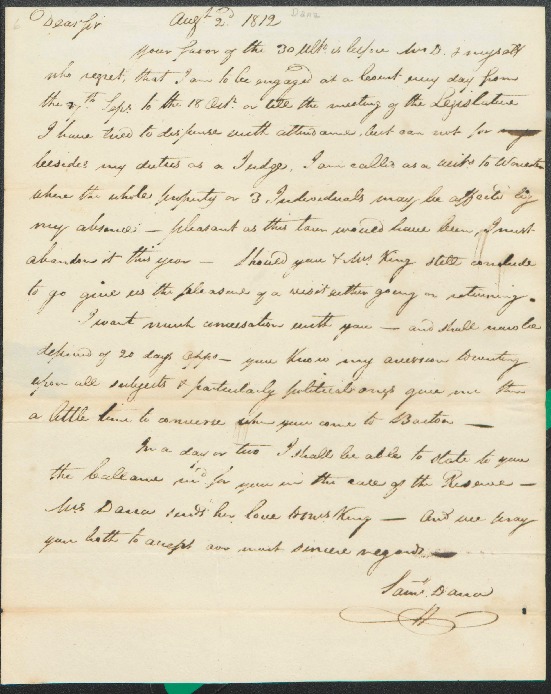 Dear Sir Augt 2d 1812 Dana
Your favor of the 30 Ulto is before Mrs D. & myself
who regret, that I am to be engaged at a Court every day from
the 7th Sepr to the 18 Octr or till the meeting of the Legislature
I have tried to dispense with attendance, but can not for
besides my duties as a Judge, I am called as a witness to Worcester
where the whole property of 3 Individuals may be affected by
my absence — pleasant as this tour would have been, I must
abandon it this year — Should you & Mrs King still conclude
to go give us the pleasure of a visit either going or returning.
I want much conversation with you — and shall now be
deprived of 20 days — you know my aversion to writing
upon all subjects & particularly political ones give me then
a little time to converse when you come to Boston —
In a day or two I shall be able to state to you
the balance for you in the case of the Reserve —
Mrs Dana sends her love to Mrs King — and we pray
you both to accept our most sincere regards —
Saml Dana